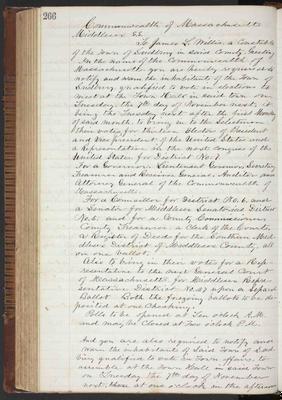 266
Commonwealth of Massachusetts
Middlesex S.S.
To James L. Willis, a Constable
of the Town of Sudbury in said County, Greeting
In the name of the Commonwealth of
Massachusetts you are hereby required to
notify and warn the inhabitants of the Town of
Sudbury, qualified to vote in elections to
meet at the Town Hall in said town on
Tuesday, the 7th day of November next, it
being the Tuesday next after the first Monday
of said month, to bring in to the Selectmen
their votes for Electors of President
and Vice president of the United States and
a Representative in the next congress of the
United States for District No 7.
For a Governor, Lieutenant Governor, Secretary
Treasurer and Receiver General, Auditor and
Attorney General of the Commonwealth of
Massachusetts.
For a Councillor for District No. 6, and
a Senator for Middlesex Senatorial District
No. 5, and for a County Commissioner
County Treasurer, a Clerk of the Courts
a Register of Deeds for the Southern Mid-
dlesex District of Middlesex County, all
on one ballot.
Also to bring in their votes for a Rep-
resentative to the next General Court
of Massachusetts for Middlesex Repre-
sentative District No. 27 upon a separate
Ballot. Both the foregoing ballots to be de-
posited at one Checking.
Polls to be opened at Ten o'clock A.M.
and may be Closed at Two o'clock P.M.
And you are also required to notify and
warn the inhabitants of said Town of Sud-
bury, qualified to vote in Town affairs, to
assemble at the Town Hall in said town
on Tuesday the 7th day of November
next, at one o'clock in the afternoon